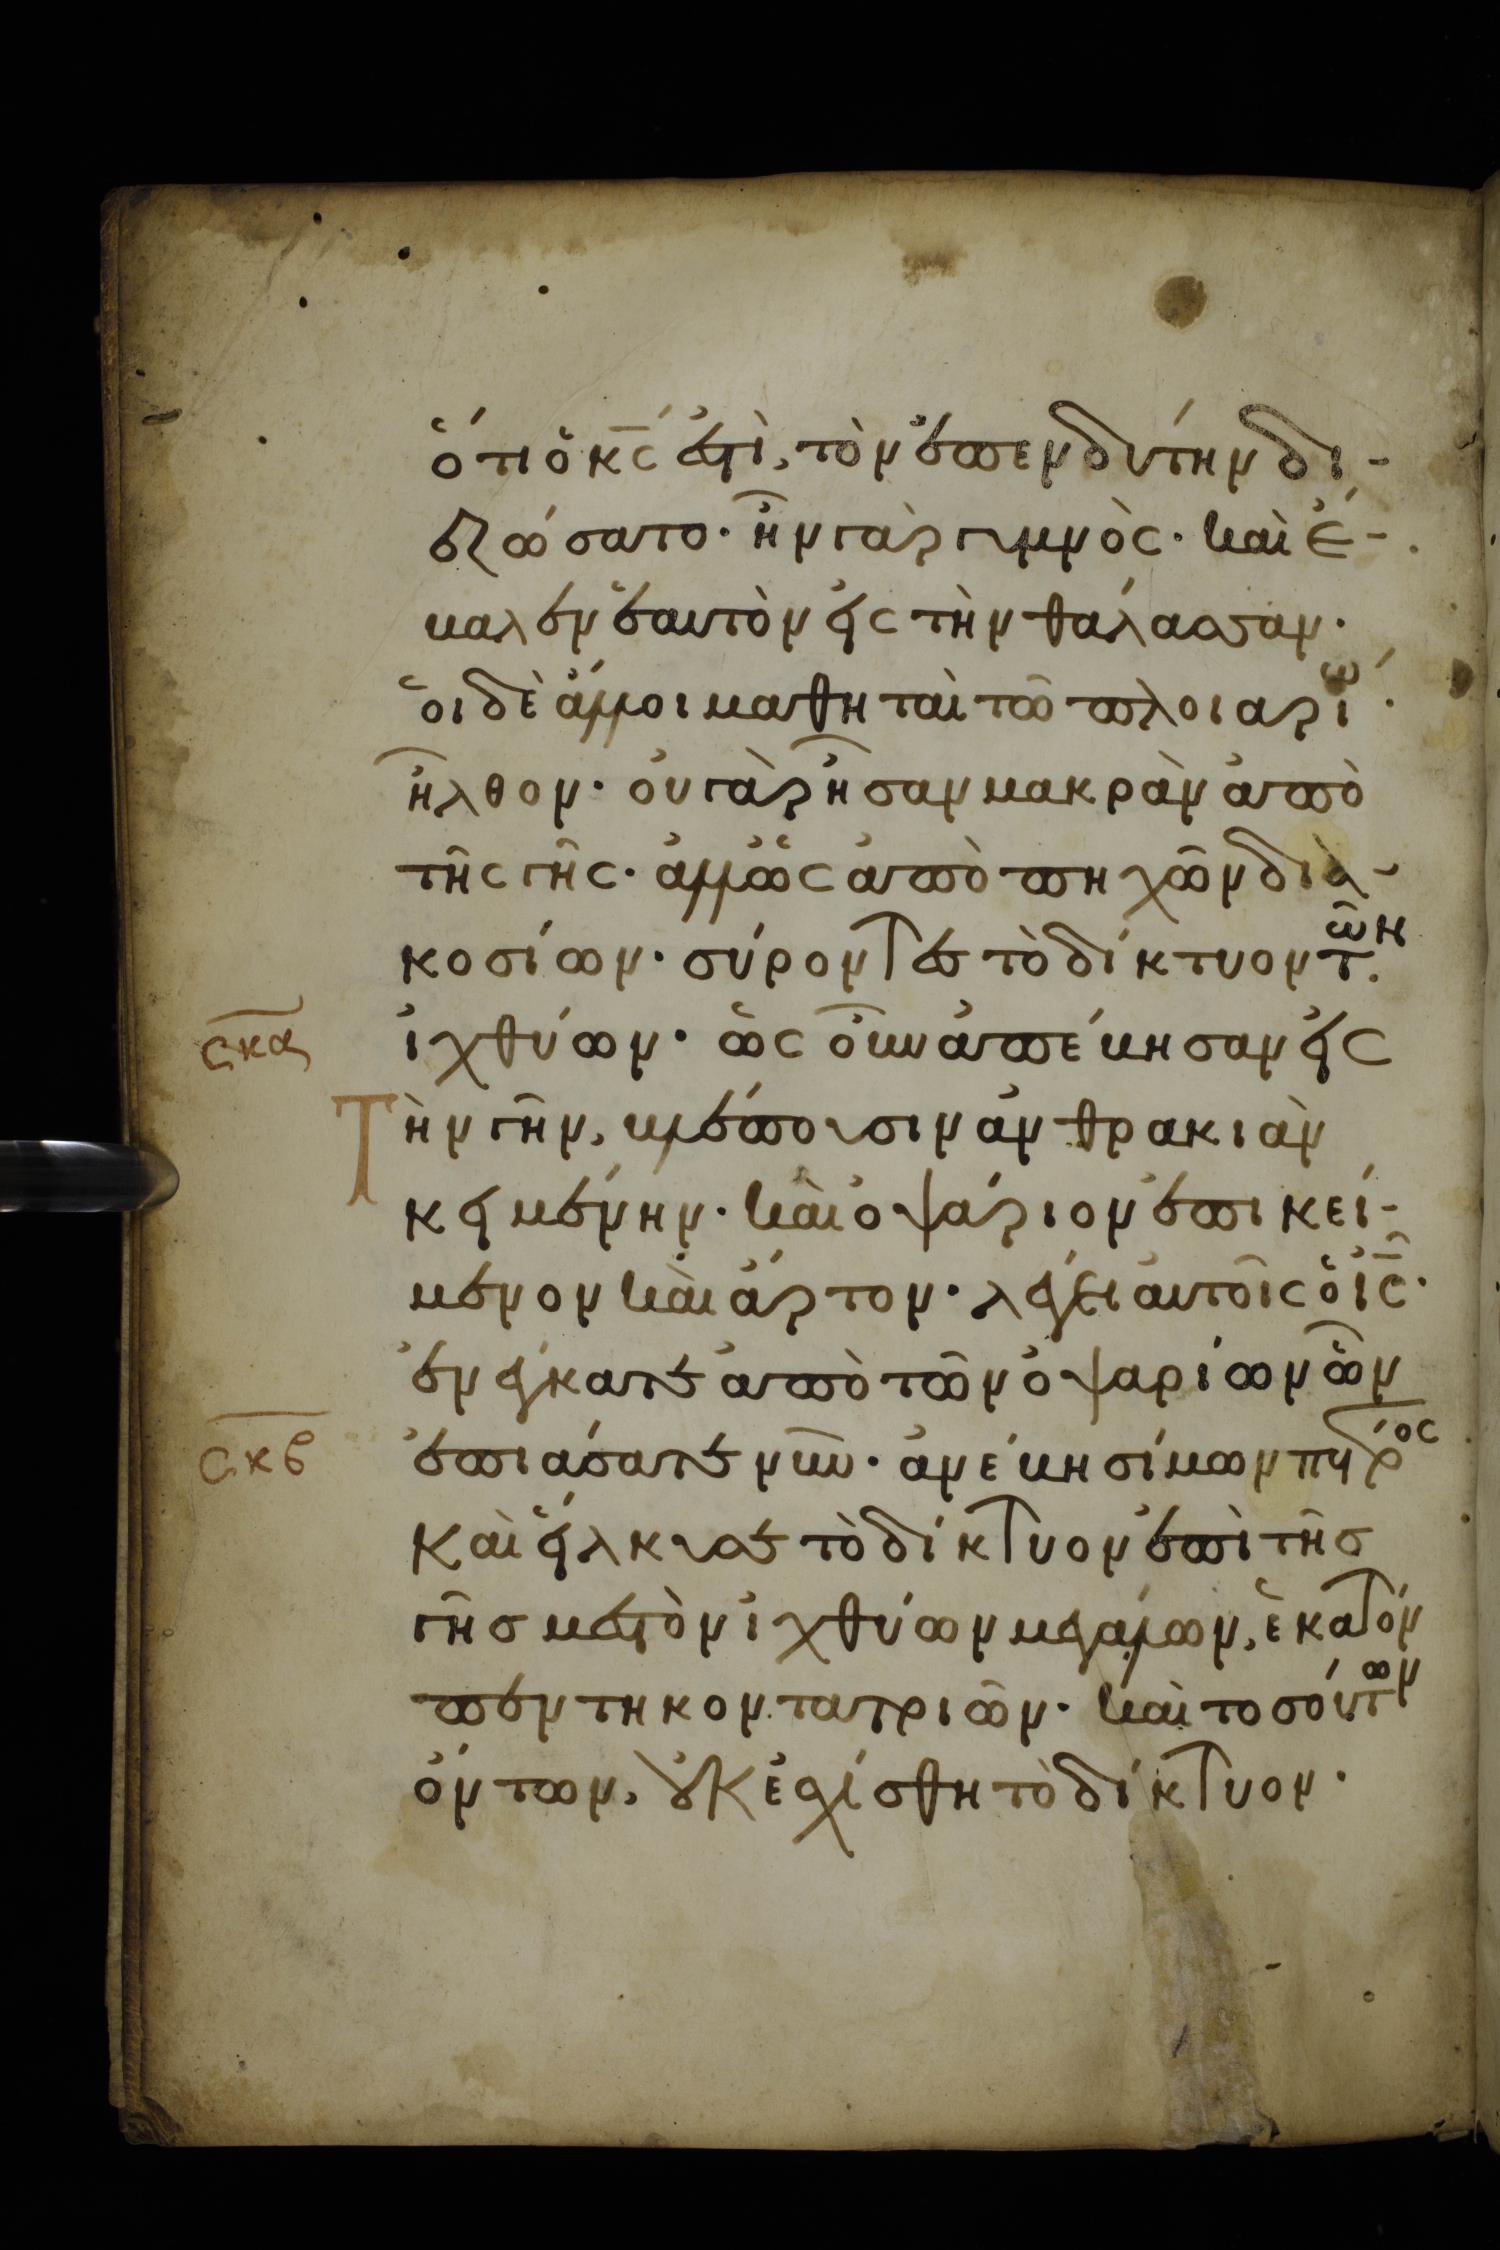 ὅτι ὁ κ̅ς̅ ἐστὶ, τὸν ἐπενδύτην δι-
εζώσατο· ἦν γὰρ γυμνὸς· καὶ ἔ-
βαλεν ἑαυτὸν εἰς τὴν θάλασσαν·
οἱ δὲ ἄλλοι μαθηταὶ τῶ πλοιαρίω·
ἦλθον· οὐ γὰρ ἦσαν μακρὰν ἀπὸ
τῆς γῆς· ἀλλ ὡς ἀπὸ πηχῶν δια-
κοσίων· σύροντες τὸ δίκτυον τῶν
σκα
ἰχθύων· ὡς οὖν ἀπέβησαν εἰς
Τὴν γῆν, βλέπουσιν ἀνθρακιὰν
κειμένην· καὶ ὀψάριον ἐπικεί-
μενον καὶ ἄρτον· λέγει αὐτοῖς ὁ ι̅ς̅·
ἐνέγκατε ἀπὸ τῶν ὀψαρίων ὧν
σκβ
ἐπιάσατε νῦν· ἀνέβη σίμων πέτρος
Καὶ εἵλκυσε τὸ δίκτυον ἐπὶ τῆς
γῆς μεστὸν ἰχθύων μεγάλων, ἑκατόν
πεντηκοντατριῶν· καὶ τοσούτων
ὄντων, οὐκ ἐσχίσθη τὸ δίκτυον·